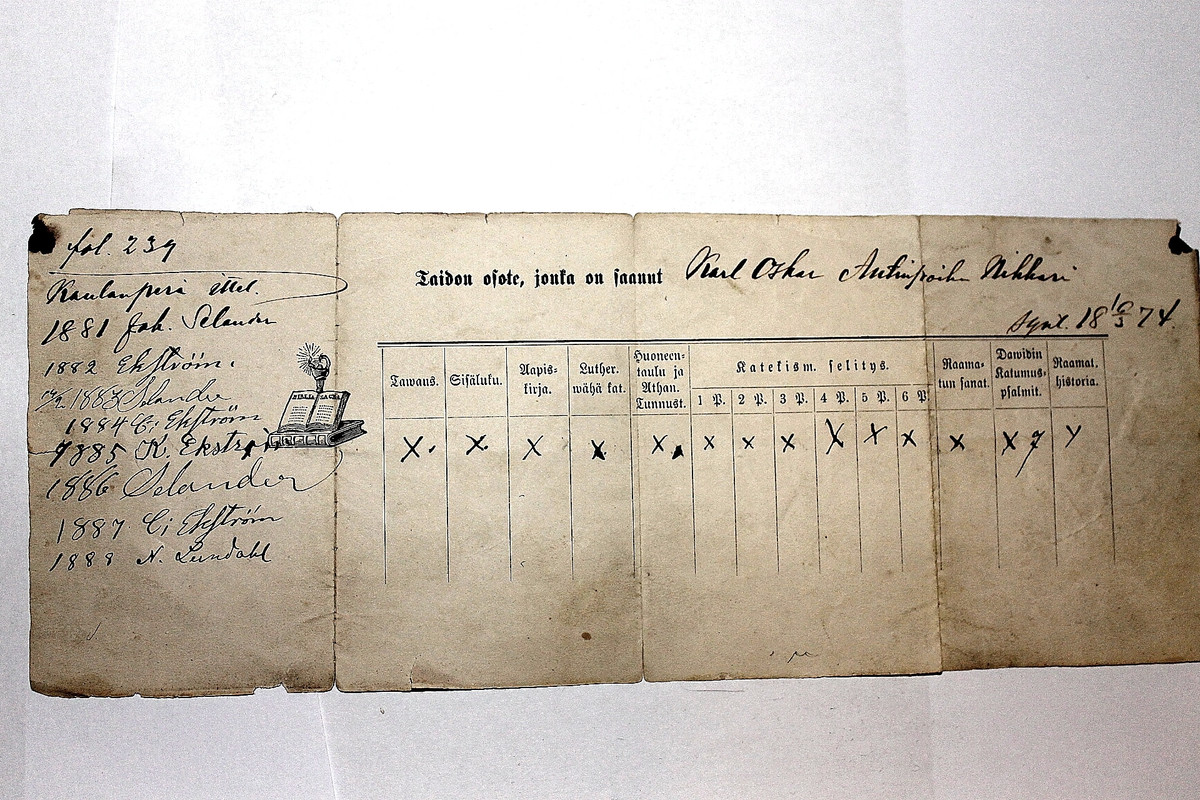 fol. 239
Kaulanperä
1881 Joh. Selander
1882 Ekström.
1883 Selander
1884 C; Ekström
1885 K. Ekström
1886 Selander
1887 C; Ekström
1888 N. Lundahl
BIBLIA SACRA
Taidon osote, jonka on saanut Karl Oskar Antinpoika Nikkari
synt. 18 10/3 74.
Tawaus.
Sisäluku.
Aapis-
kirja.
Luther.
wähä kat.
Huoneen-
taulu ja
Athan.
Tunnust.
Katekism. selitys.
1 P. 2 P. 3 P. 4 P. 5 P. 6 P.
Raama-
tun sanat.
Dawidin
Katumus-
psalmit.
Raamat.
historia.
X. X. X X X X X X X X X X X 7 Y